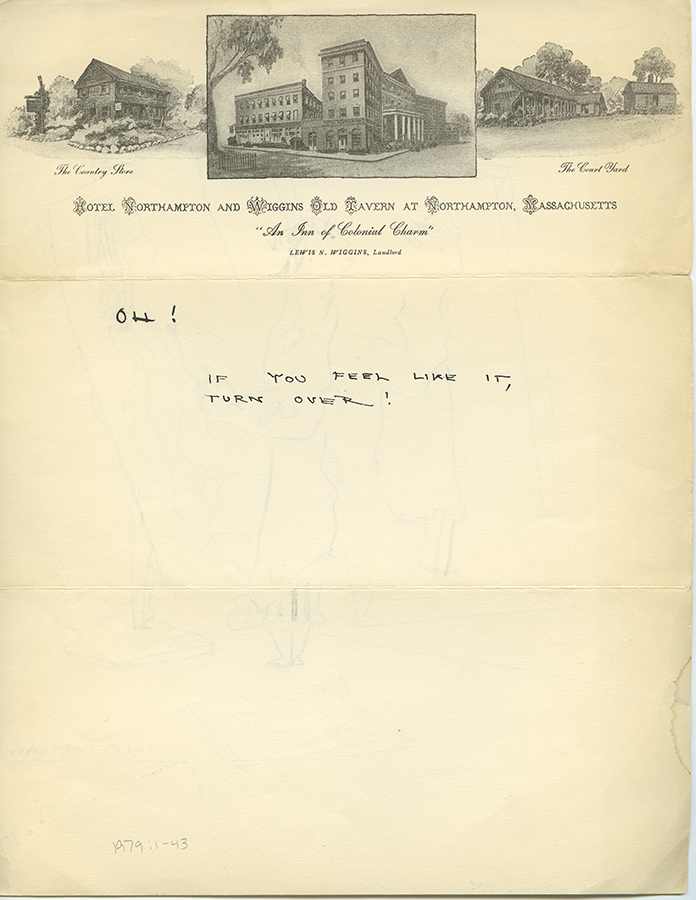 The Country Store
The Court Yard
Hotel Northampton and Wiggins Old Tavern at Northampton, Massachusetts
"An Inn of Colonial Charm"
LEWIS N. WIGGINS, Landlord
OH!
IF YOU FEEL LIKE IT,
TURN OVER!
1979:1-43